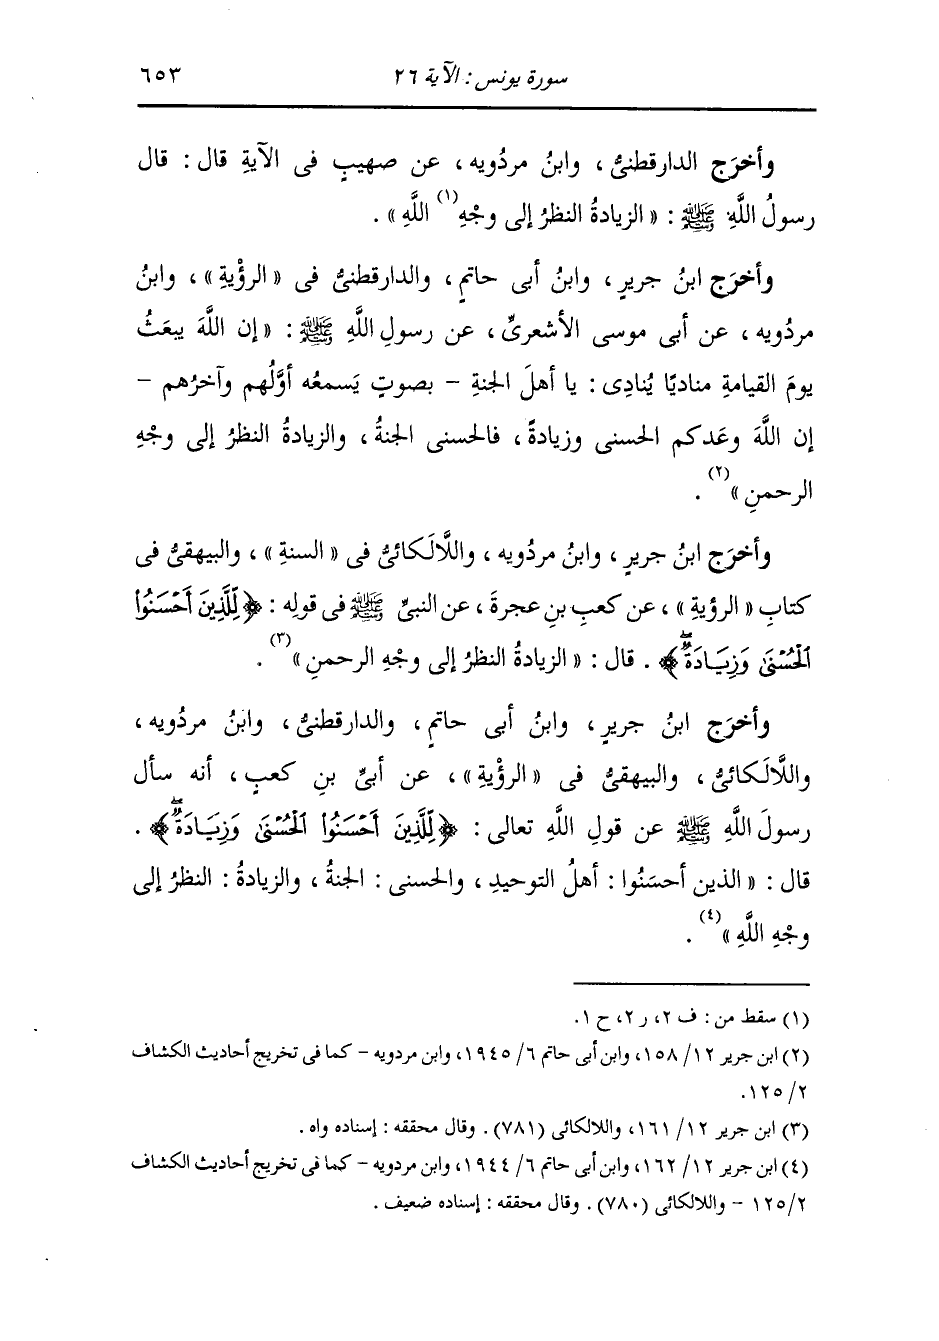 سورة يونس : الآية ٢٦ ٦٥٣
وأخرَج الدارقطنىُّ ، وابنُ مردُويه ، عن صهيبٍ فى الآيةِ قال : قال
رسولُ اللَّهِ ﷺ : « الزيادةُ النظرُ إلى وجْهِ(١) اللَّهِ » .
وأخرَج ابنُ جريرٍ ، وابنُ أبى حاتمٍ ، والدارقطنىُّ فى « الرؤْيةِ » ، وابنُ
مردُويه ، عن أبى موسى الأشعرىِّ ، عن رسولِ اللَّهِ ﷺ : « إن اللَّهَ يبعَثُ
يومَ القيامةِ مناديًا يُنادِى : يا أهلَ الجنةِ - بصوتٍ يَسمعُه أوَّلُهم وآخرُهم -
إن اللَّهَ وعَدكم الحسنى وزيادةً ، فالحسنى الجنةُ ، والزيادةُ النظرُ إلى وجْهِ
الرحمنِ »(٢) .
وأخرَج ابنُ جريرٍ ، وابنُ مردُويه ، واللَّالَكائىُّ فى « السنةِ » ، والبيهقىُّ فى
كتابِ « الرؤيةِ » ، عن كعبِ بنِ عجرةَ ، عن النبىِّ ﷺ فى قولِه : ﴿لِّلَّذِينَ أَحْسَنُوا۟
ٱلْحُسْنَىٰ وَزِيَادَةٌۖ﴾ . قال : « الزيادةُ النظرُ إلى وجْهِ الرحمنِ »(٣) .
وأخرَج ابنُ جريرٍ ، وابنُ أبى حاتمٍ ، والدارقطنىُّ ، وابنُ مردُويه ،
واللَّالَكائىُّ ، والبيهقىُّ فى « الرؤْيةِ » ، عن أبىِّ بنِ كعبٍ ، أنه سأل
رسولَ اللَّهِ ﷺ عن قولِ اللَّهِ تعالى : ﴿لِّلَّذِينَ أَحْسَنُوا۟ ٱلْحُسْنَىٰ وَزِيَادَةٌۖ﴾ .
قال : « الذين أحسَنُوا : أهلُ التوحيدِ ، والحسنى : الجنةُ ، والزيادةُ : النظرُ إلى
وجْهِ اللَّهِ »(٤) .
(١) سقط من : ف ٢، ر ٢، ح ١.
(٢) ابن جرير ١٢/ ١٥٨، وابن أبى حاتم ٦/ ١٩٤٥، وابن مردويه - كما فى تخريج أحاديث الكشاف
٢/ ١٢٥.
(٣) ابن جرير ١٢/ ١٦١، واللالكائى (٧٨١) . وقال محققه : إسناده واه .
(٤) ابن جرير ١٢/ ١٦٢، وابن أبى حاتم ٦/ ١٩٤٤، وابن مردويه - كما فى تخريج أحاديث الكشاف
٢/ ١٢٥ - واللالكائى (٧٨٠) . وقال محققه : إسناده ضعيف .